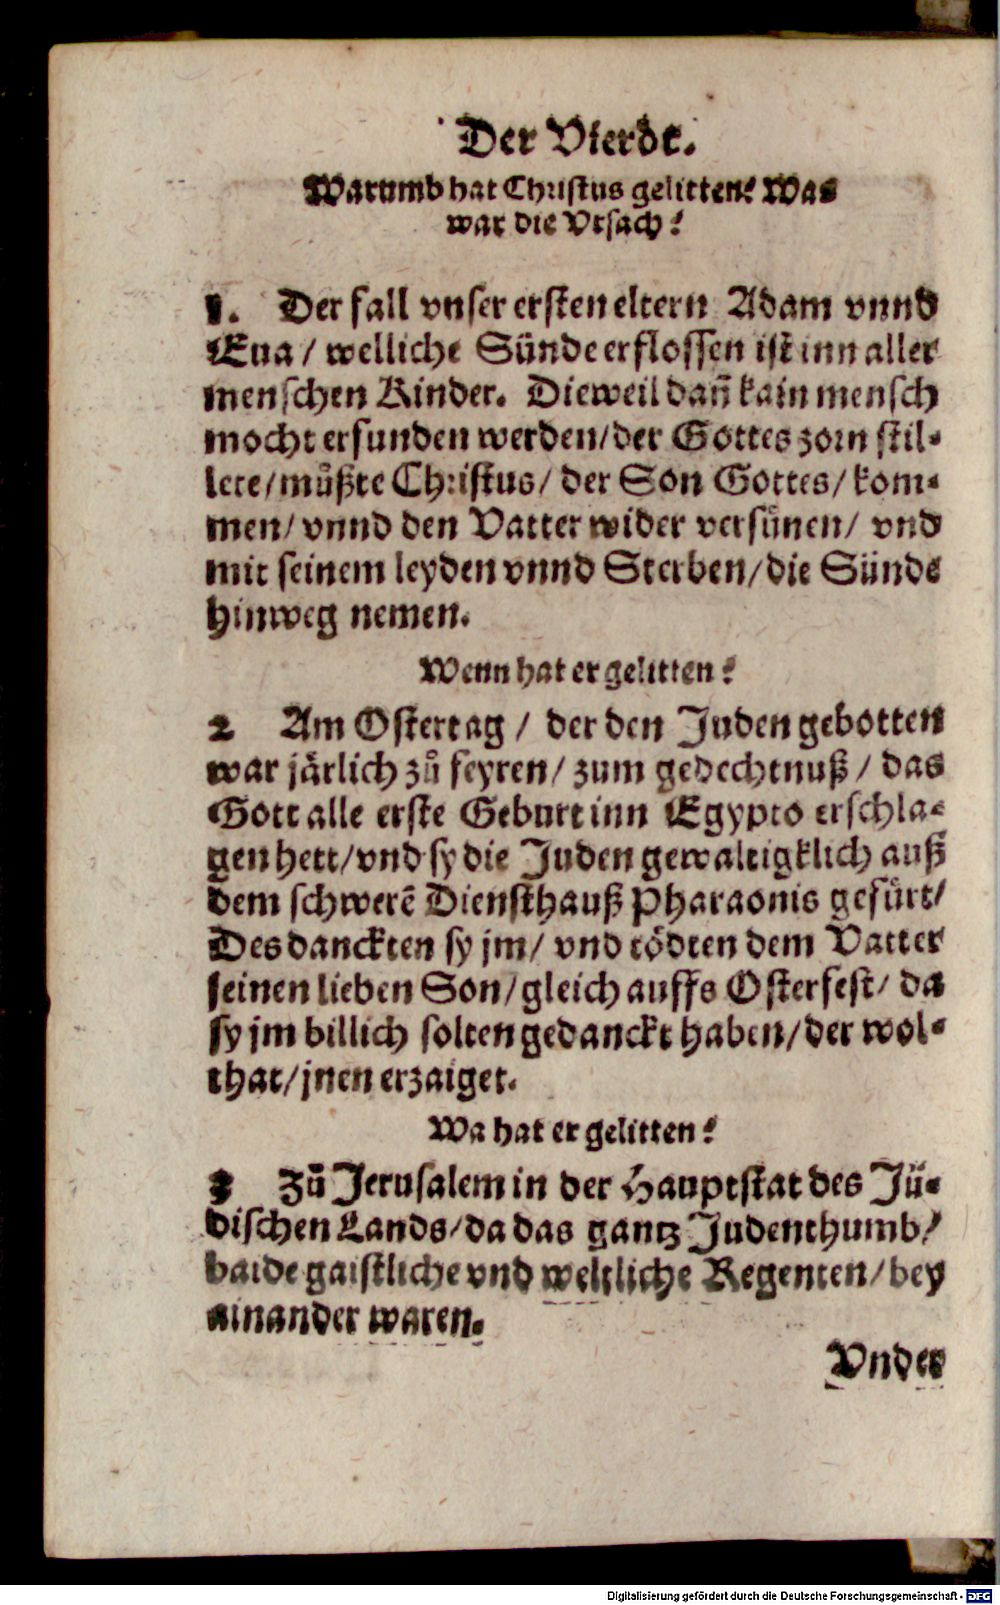 Der Vierdt.
Warumb hat Christus gelitten? Was
war die Vrsach?
1. Der fall vnser ersten eltern Adam vnnd
Eua / welliche Sünde erflossen ist inn aller
menschen Kinder. Dieweil dañ kain mensch
mocht erfunden werden/der Gottes zorn stil-
lete/můßte Christus/ der Son Gottes/ kom-
men/ vnnd den Vatter wider versünen/ vnd
mit seinem leyden vnnd Sterben/die Sünde
hinweg nemen.
Wenn hat er gelitten?
2 Am Ostertag / der den Juden gebotten
war järlich zů feyren/ zum gedechtnuß / das
Gott alle erste Geburt inn Egypto erschla-
gen hett/vnd sy die Juden gewaltigklich auß
dem schwerẽ Diensthauß Pharaonis gefürt/
Des danckten sy jm/ vnd tödten dem Vatter
seinen lieben Son/gleich auffs Osterfest/ da
sy jm billich solten gedanckt haben/der wol-
that/jnen erzaiget.
Wa hat er gelitten?
3 Zů Jerusalem in der Hauptstat des Jü-
dischen Lands/da das gantz Judenthumb/
baide gaistliche vnd weltliche Regenten/bey
ainander waren.
Vnder
Digitalisierung gefördert durch die Deutsche Forschungsgemeinschaft - DFG